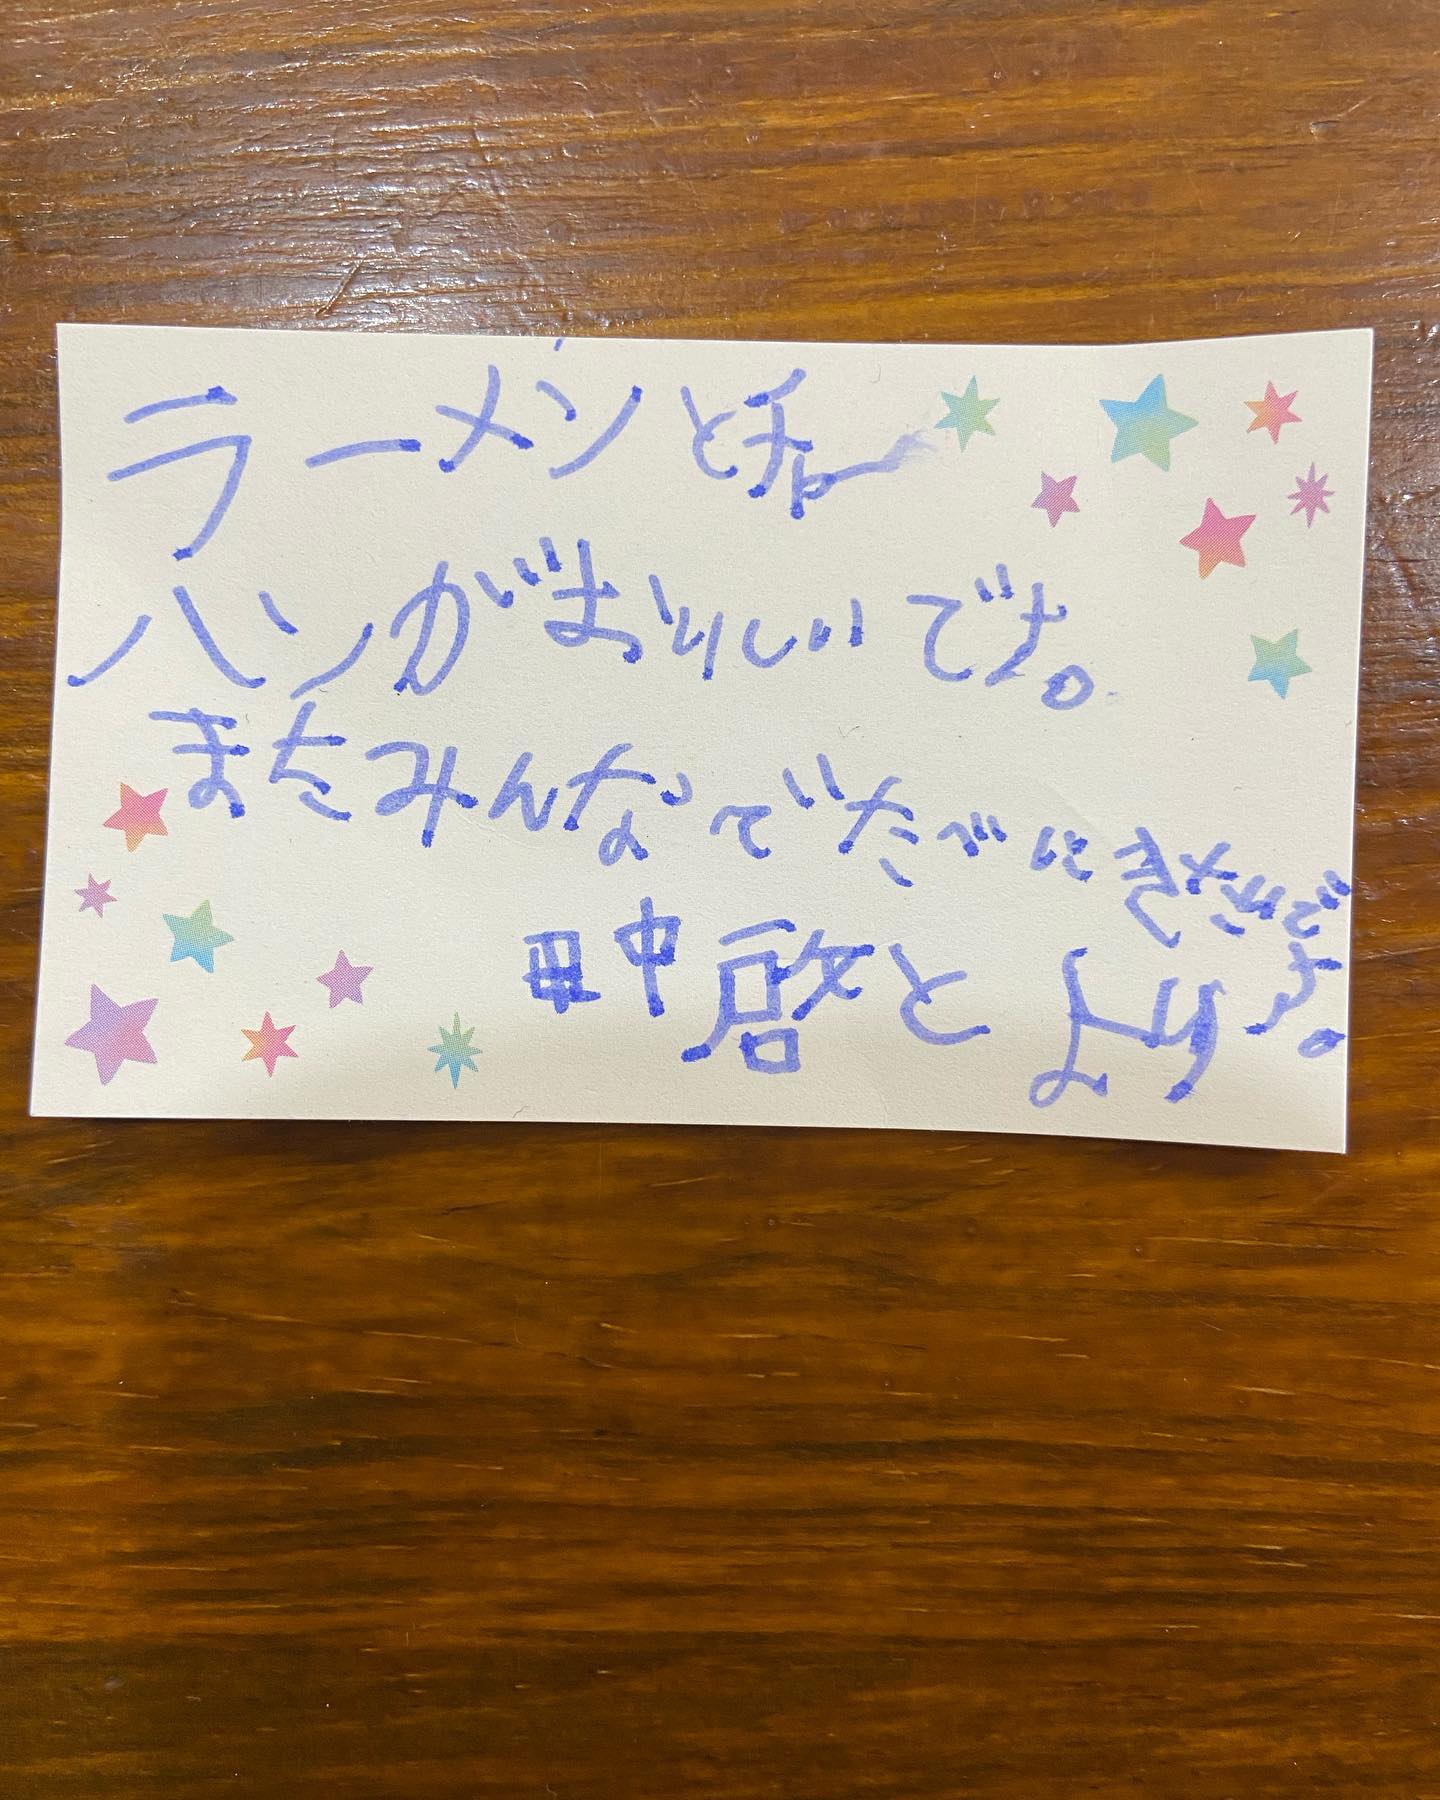 ラーメンとチャー
ハンがおいしいです。
またみんなでたべにきたいで
す。
田中啓とより